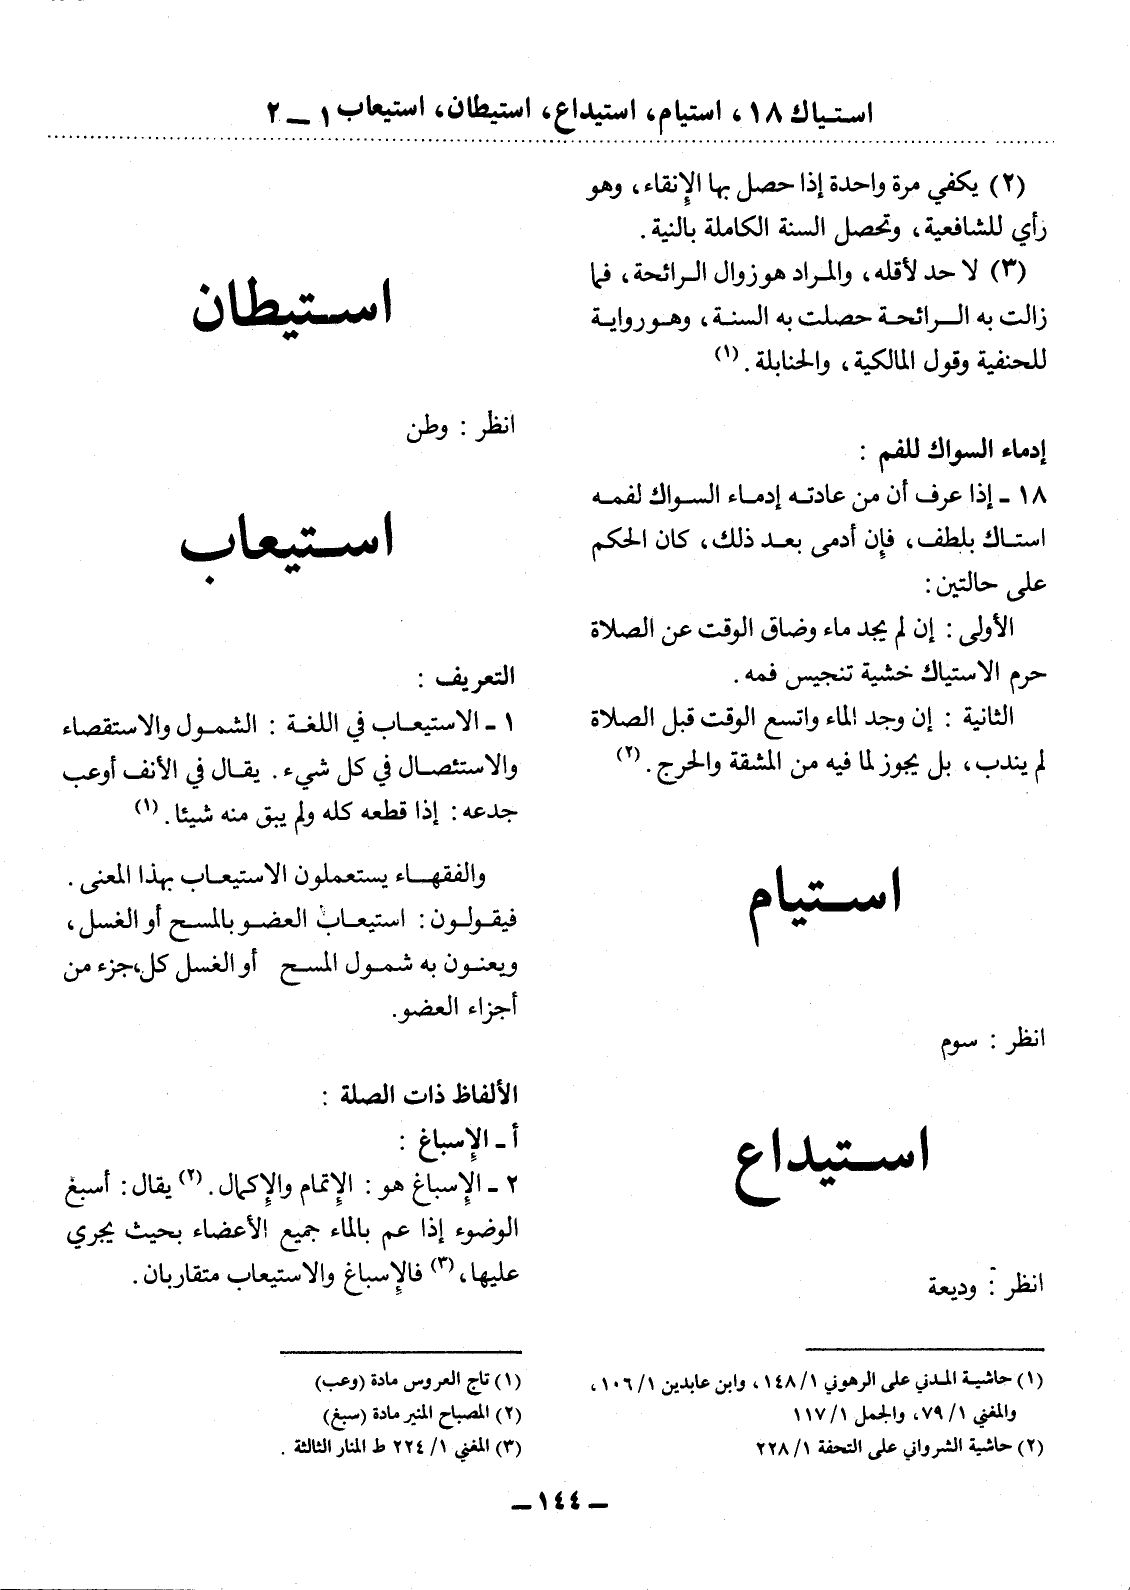 استياك ١٨، استيام، استيداع، استيطان، استيعاب ١ ـ ٢
(٢) يكفي مرة واحدة إذا حصل بها الإنقاء، وهو
رأي للشافعية، وتحصل السنة الكاملة بالنية.
(٣) لا حد لأقله، والمراد هو زوال الرائحة، فما
زالت به الرائحة حصلت به السنة، وهو رواية
للحنفية وقول المالكية، والحنابلة. (١)
إدماء السواك للفم :
١٨ ـ إذا عرف أن من عادته إدماء السواك لفمه
استاك بلطف، فإن أدمى بعد ذلك، كان الحكم
على حالتين:
الأولى : إن لم يجد ماء وضاق الوقت عن الصلاة
حرم الاستياك خشية تنجيس فمه.
الثانية : إن وجد الماء واتسع الوقت قبل الصلاة
لم يندب، بل يجوز لما فيه من المشقة والحرج. (٢)
استيام
انظر : سوم
استيداع
انظر : وديعة
(١) حاشية المدني على الرهوني ١/ ١٤٨، وابن عابدين ١/ ١٠٦،
والمغني ١/ ٧٩، والجمل ١/ ١١٧
(٢) حاشية الشرواني على التحفة ١/ ٢٢٨
استيطان
انظر : وطن
استيعاب
التعريف :
١ ـ الاستيعاب في اللغة : الشمول والاستقصاء
والاستئصال في كل شيء. يقال في الأنف أوعب
جدعه: إذا قطعه كله ولم يبق منه شيئا. (١)
والفقهاء يستعملون الاستيعاب بهذا المعنى.
فيقولون: استيعاب العضو بالمسح أو الغسل،
ويعنون به شمول المسح أو الغسل كل جزء من
أجزاء العضو.
الألفاظ ذات الصلة :
أ ـ الإسباغ :
٢ ـ الإسباغ هو : الإتمام والإكمال. (٢) يقال: أسبغ
الوضوء إذا عم بالماء جميع الأعضاء بحيث يجري
عليها، (٣) فالإسباغ والاستيعاب متقاربان.
(١) تاج العروس مادة (وعب)
(٢) المصباح المنير مادة (سبغ)
(٣) المغني ١/ ٢٢٤ ط المنار الثالثة.
ـ ١٤٤ ـ